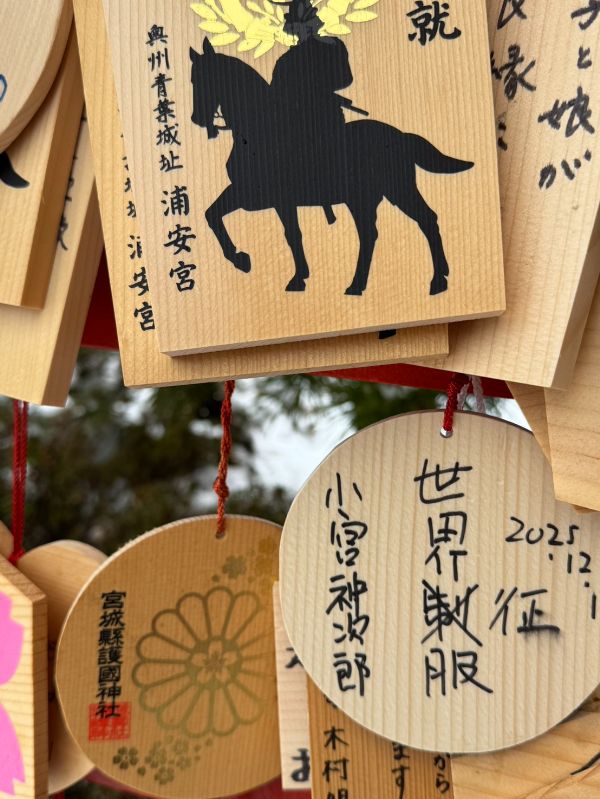 就
奥州青葉城址 浦安宮
浦安宮
縁
と娘が
2025.12.1
世界製服
征
小宮神次郎
宮城縣護國神社
木村
ます
から
お